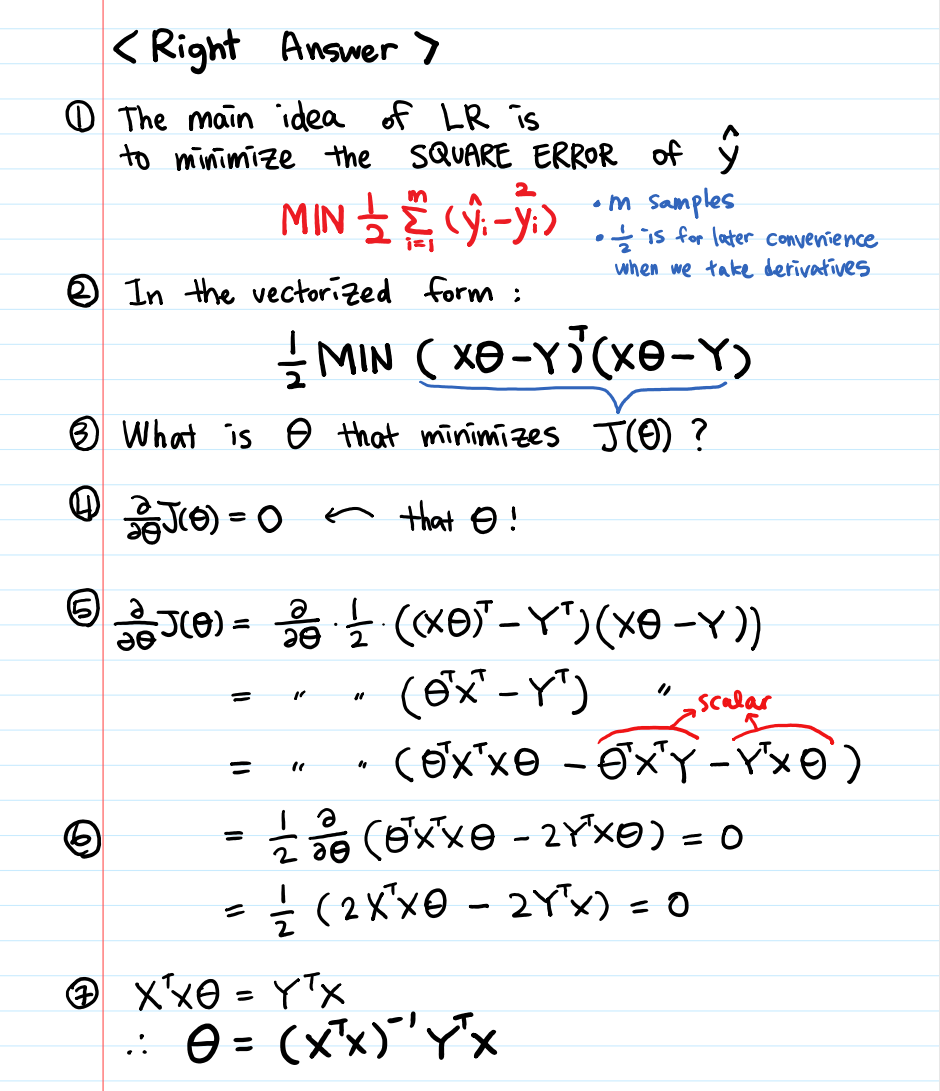 <Right Answer>
① The main idea of LR is
to minimize the SQUARE ERROR of ŷ
MIN 1/2 Σᵢ₌₁ᵐ (ŷᵢ-yᵢ)²
• m samples
• 1/2 is for later convenience
when we take derivatives
② In the vectorized form :
1/2 MIN (Xθ-Y)ᵀ(Xθ-Y)
③ What is θ that minimizes J(θ) ?
④ ∂/∂θ J(θ) = 0 ← that θ !
⑤ ∂/∂θ J(θ) = ∂/∂θ · 1/2 · ((Xθ)ᵀ - Yᵀ)(Xθ - Y))
= 〃 〃 (θᵀXᵀ - Yᵀ) 〃
scalar
= 〃 〃 (θᵀXᵀXθ - θᵀXᵀY - YᵀXθ)
⑥ = 1/2 ∂/∂θ (θᵀXᵀXθ - 2YᵀXθ) = 0
= 1/2 (2XᵀXθ - 2YᵀX) = 0
⑦ XᵀXθ = YᵀX
∴ θ = (XᵀX)⁻¹YᵀX